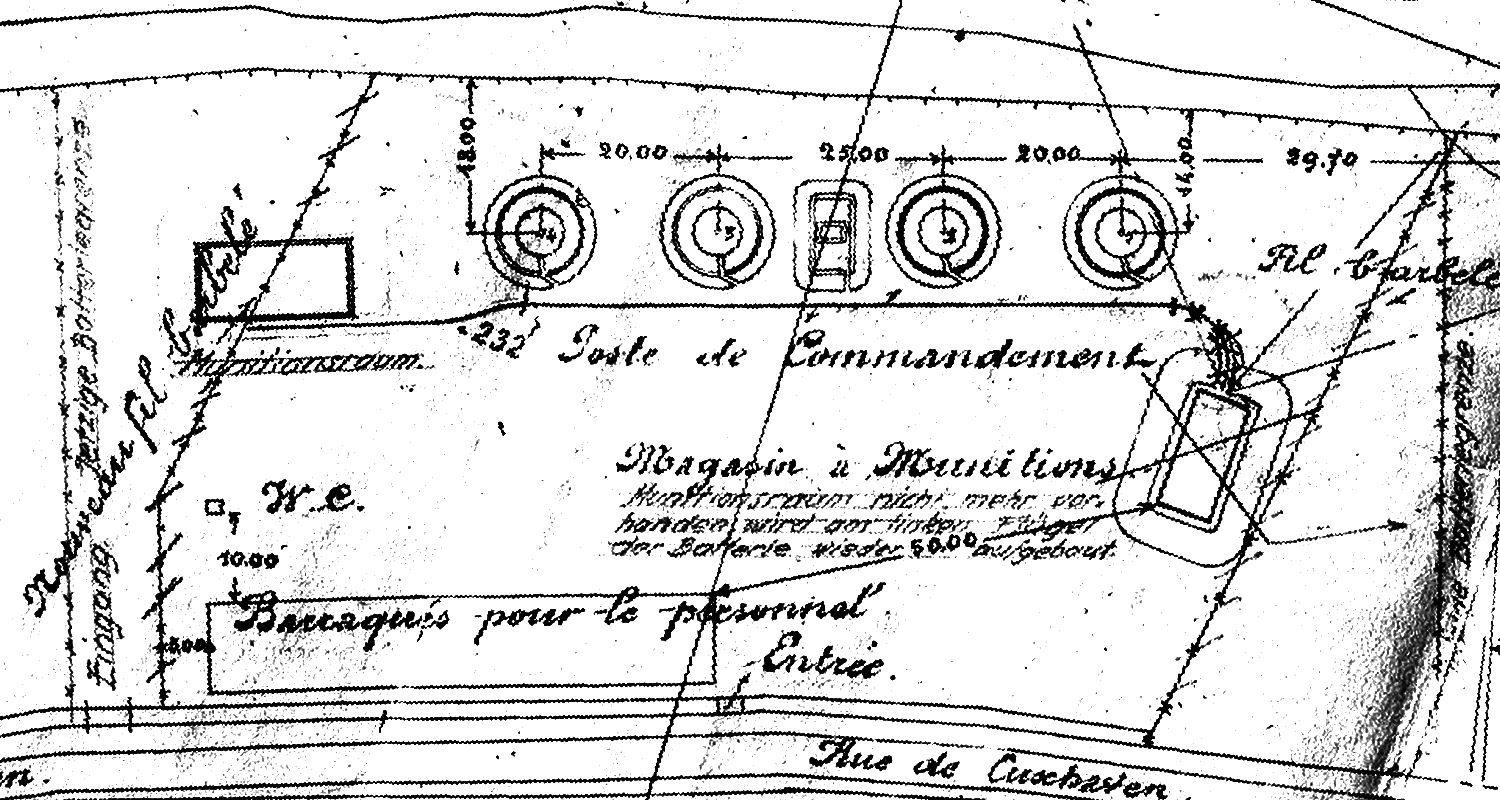 18.00
20.00
25.00
20.00
14.00
29.70
4
3
2
1
Fil barbelé
Munitionsraum.
232
Poste de Commandement
Magasin à Munitions
Munitionsraum nicht mehr vor-
handen wird am linken Flügel
der Batterie wieder aufgebaut.
50.00
W.C.
10.00
Barraqués pour le personnel
5.00
Entrée.
Eingang
Jetzige Batteriegrenze
Nouveau fil barbelé
Rue de Cuxhaven